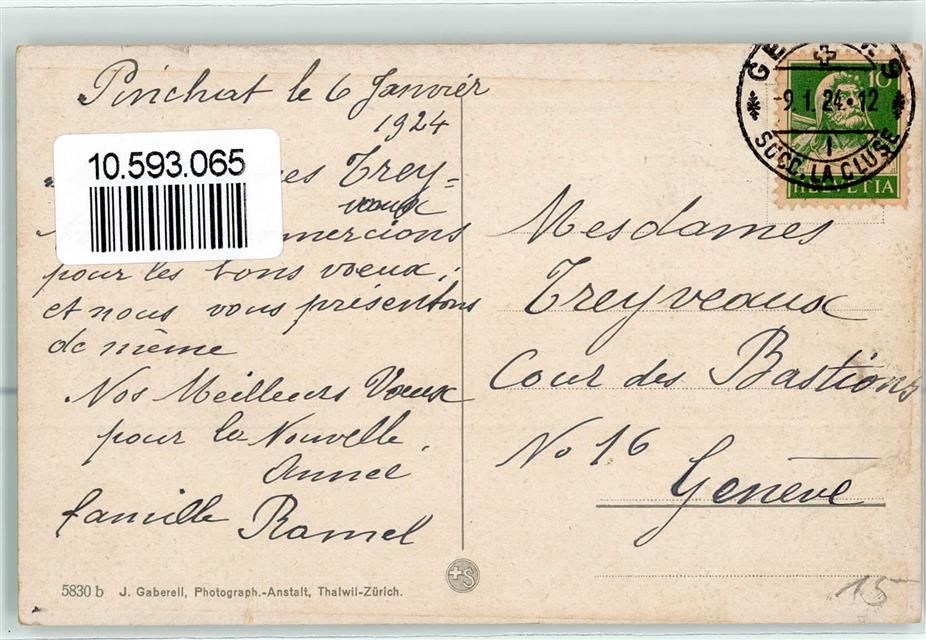 Pinchat le 6 Janvier
1924
10.593.065
Trey=
vaux
mercions
pour les bons voeux,
et nous vous présentons
de même
Nos Meilleurs Voeux
pour la Nouvelle
Année
famille Ramel
5830 b J. Gaberell, Photograph.-Anstalt, Thalwil-Zürich.
+S
-9.1.24-12
SUCC. LA CLUSE
10
HELVETIA
Mesdames
Treyveaux
Cour des Bastions
No 16
Genève
15